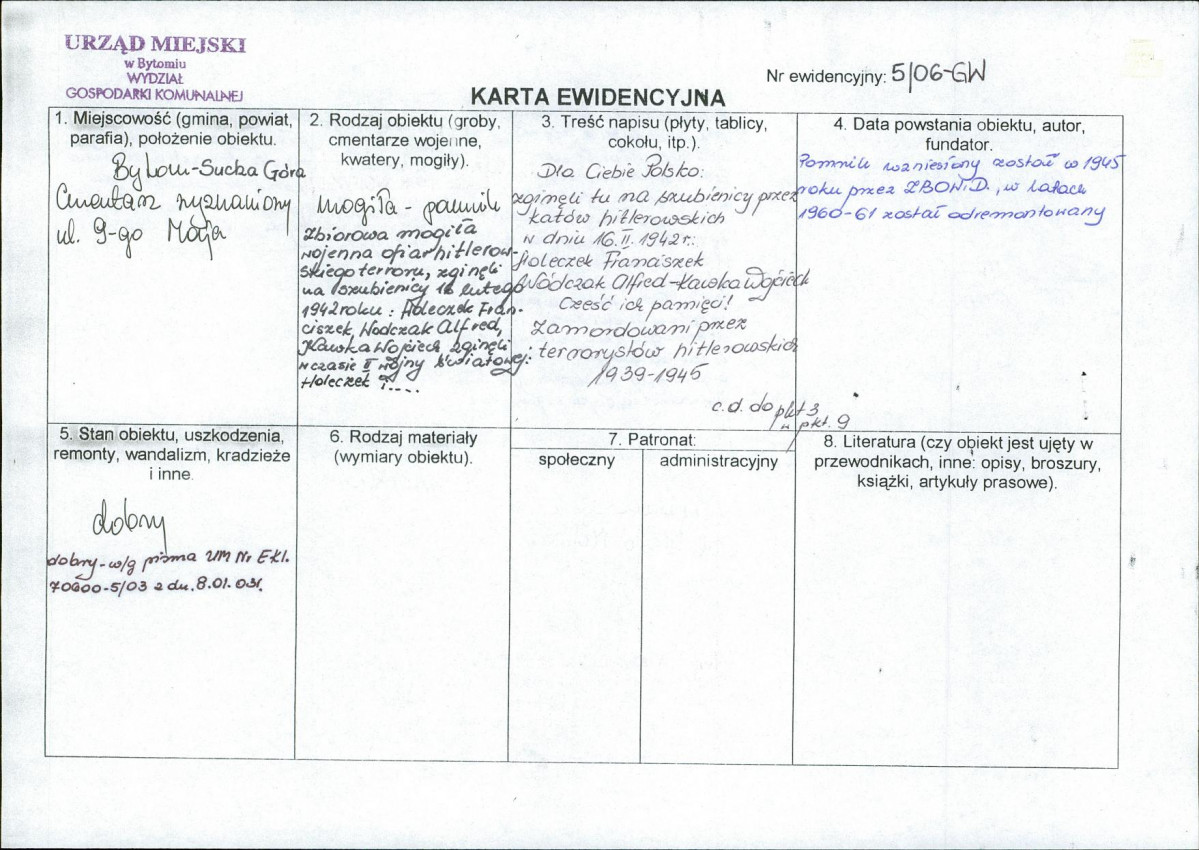 URZĄD MIEJSKI
w Bytomiu
WYDZIAŁ
GOSPODARKI KOMUNALNEJ
Nr ewidencyjny: 5/06-GW
KARTA EWIDENCYJNA
1. Miejscowość (gmina, powiat,
parafia), położenie obiektu.
Bytom-Sucha Góra
Cmentarz wyznaniowy
ul. 9-go Maja
2. Rodzaj obiektu (groby,
cmentarze wojenne,
kwatery, mogiły).
mogiła - pomnik
Zbiorowa mogiła
wojenna ofiar hitlerow-
skiego terroru, zginęli
na szubienicy 16 lutego
1942 roku: Holeczek Fran-
ciszek, Wodczak Alfred,
Kawka Wojciech zginęli
w czasie II wojny światowej:
Holeczek ?....
3. Treść napisu (płyty, tablicy,
cokołu, itp.).
Dla Ciebie Polsko:
zginęli tu na szubienicy przez
katów hitlerowskich
w dniu 16.II.1942r.:
Holeczek Franciszek
Wódczak Alfred-Kawka Wojciech
Cześć ich pamięci!
Zamordowani przez
terrorystów hitlerowskich
1939-1945
c.d. do pkt 3
w pkt. 9
4. Data powstania obiektu, autor,
fundator.
Pomnik wzniesiony został w 1945
roku przez ZBOWiD., w latach
1960-61 został odremontowany
5. Stan obiektu, uszkodzenia,
remonty, wandalizm, kradzieże
i inne.
dobry
dobry-w/g pisma UM Nr EKl.
70600-5/03 z dn. 8.01.03r.
6. Rodzaj materiały
(wymiary obiektu).
7. Patronat:
społeczny
administracyjny
8. Literatura (czy obiekt jest ujęty w
przewodnikach, inne: opisy, broszury,
książki, artykuły prasowe).